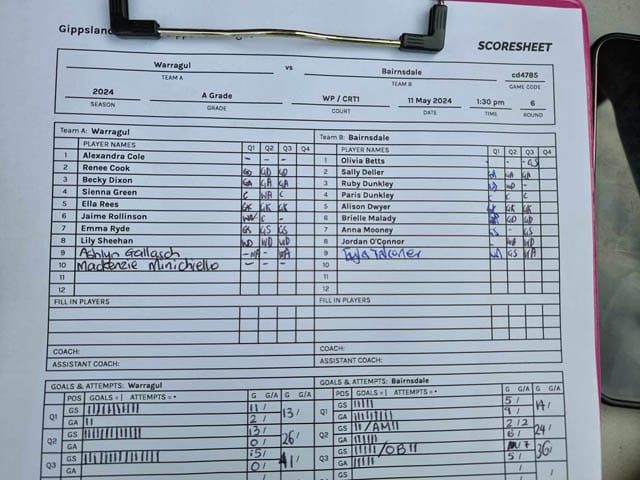 Gippsland
SCORESHEET
Warragul vs Bairnsdale cd4785
TEAM A TEAM B GAME CODE
2024 A Grade WP / CRT1 11 May 2024 1:30 pm 6
SEASON GRADE COURT DATE TIME ROUND
Team A: Warragul
PLAYER NAMES Q1 Q2 Q3 Q4
1 Alexandra Cole - - -
2 Renee Cook GD GD GD
3 Becky Dixon GA GA GA
4 Sienna Green C WA C
5 Ella Rees GK GK GK
6 Jaime Rollinson C -
7 Emma Ryde GS GS GS
8 Lily Sheehan WD WD WD
9 Ashlyn Gallasch
10 Mackenzie Minichiello
11
12
FILL IN PLAYERS
COACH:
ASSISTANT COACH:
Team B: Bairnsdale
PLAYER NAMES Q1 Q2 Q3 Q4
1 Olivia Betts - - GS
2 Sally Deller GA GA
3 Ruby Dunkley WD -
4 Paris Dunkley C C C
5 Alison Dwyer GK GK GK
6 Brielle Malady GD GD
7 Anna Mooney GS - GS
8 Jordan O'Connor - WD
9 Tayla Falconer WA GS WA
10
11
12
FILL IN PLAYERS
COACH:
ASSISTANT COACH:
GOALS & ATTEMPTS: Warragul G G/A G G/A
POS GOALS = | ATTEMPTS = •
Q1 GS ||||||||||| 11/ 13/
GA || 2/
Q2 GS ||||||||||||| 13/ 26/
GA 0/
Q3 GS ||||||||||||||| 15/ 41/
GA 0/
GOALS & ATTEMPTS: Bairnsdale G G/A G G/A
POS GOALS = | ATTEMPTS = •
Q1 GS ||||| 5/ 14/
GA ||||||||| 9/
Q2 GS ||/AM|| 2/2 24/
GA |||||| 6/
Q3 GS |||||/OB|| /7 36/
GA ||||| 5/